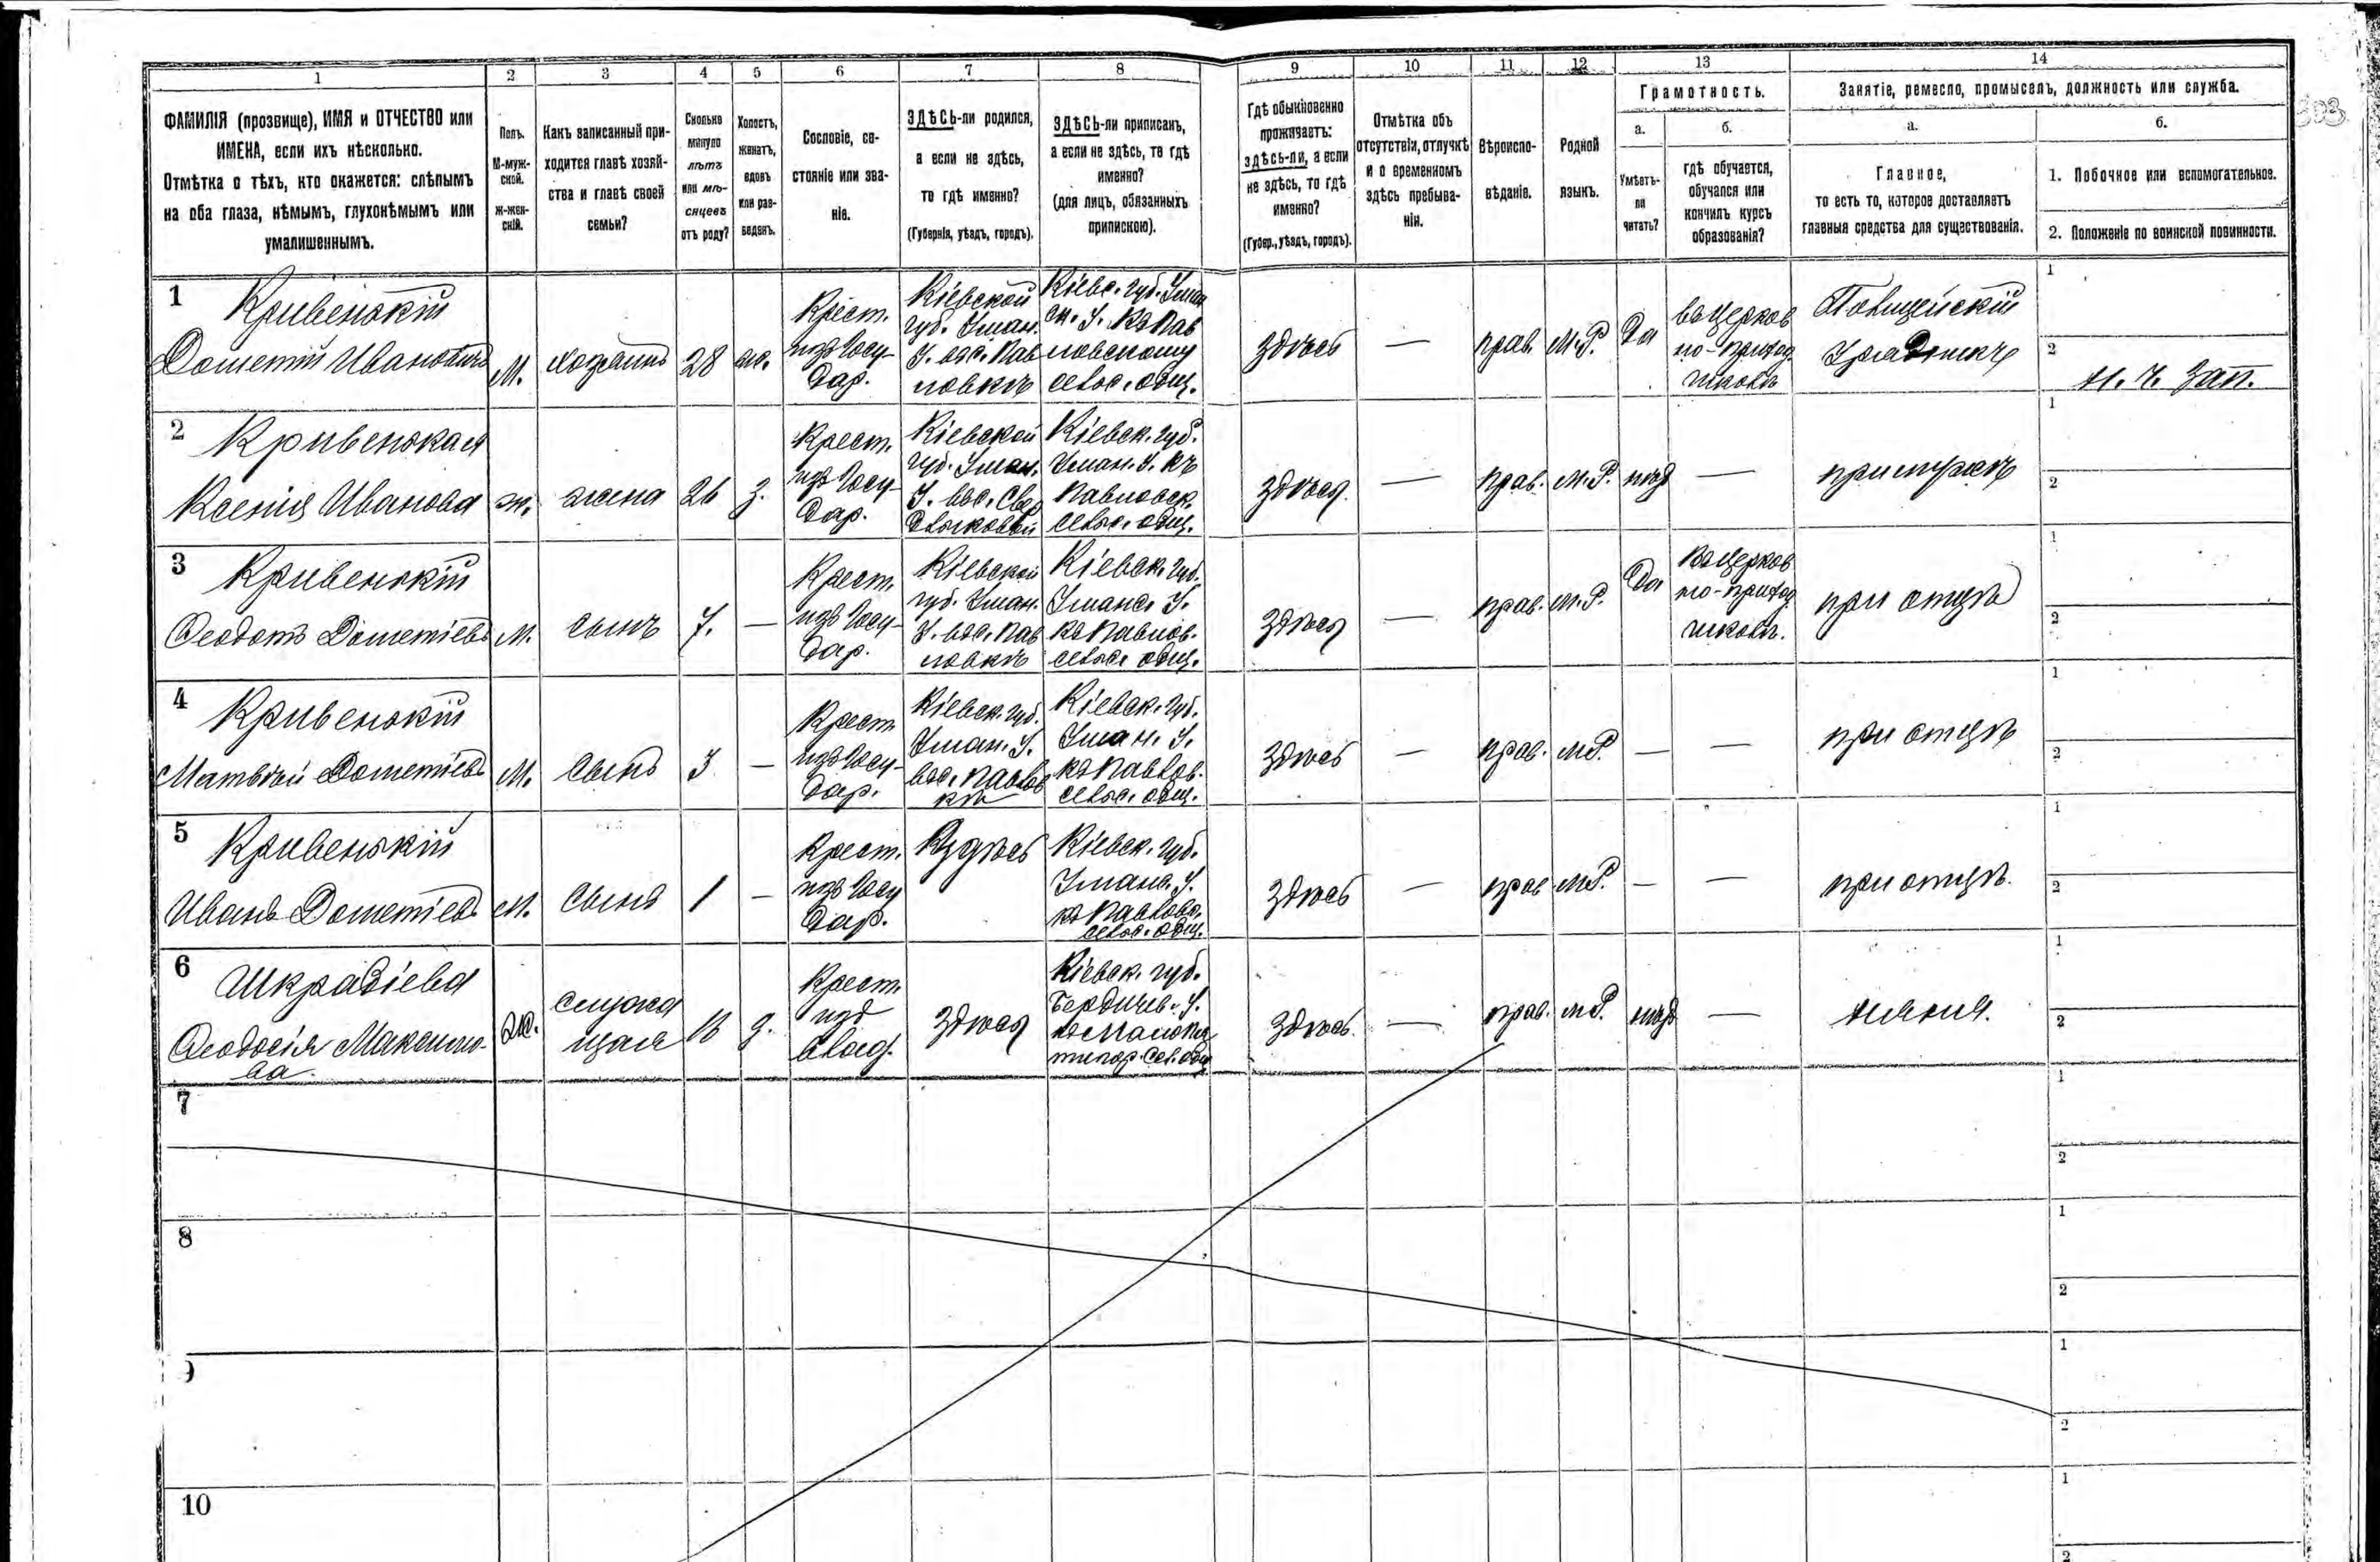 1 2 3 4 5 6 7 8 9 10 11 12 13 14
ФАМИЛІЯ (прозвище), ИМЯ и ОТЧЕСТВО или
ИМЕНА, если ихъ нѣсколько.
Отмѣтка о тѣхъ, кто окажется: слѣпымъ
на оба глаза, нѣмымъ, глухонѣмымъ или
умалишеннымъ.
Полъ.
М-муж-
ской.
Ж-жен-
скій.
Какъ записанный при-
ходится главѣ хозяй-
ства и главѣ своей
семьи?
Сколько
минуло
лѣтъ
или мѣ-
сяцевъ
отъ роду?
Холостъ,
женатъ,
вдовъ
или раз-
веденъ.
Сословіе, со-
стояніе или зва-
ніе.
ЗДѢСЬ-ли родился,
а если не здѣсь,
то гдѣ именно?
(Губернія, уѣздъ, городъ).
ЗДѢСЬ-ли приписанъ,
а если не здѣсь, то гдѣ
именно?
(для лицъ, обязанныхъ
припискою).
Гдѣ обыкновенно
проживаетъ:
здѣсь-ли, а если
не здѣсь, то гдѣ
именно?
(Губер., уѣздъ, городъ).
Отмѣтка объ
отсутствіи, отлучкѣ
и о временномъ
здѣсь пребыва-
ніи.
Вѣроиспо-
вѣданіе.
Родной
языкъ.
Грамотность.
а.
Умѣетъ-
ли
читать?
б.
гдѣ обучается,
обучался или
кончилъ курсъ
образованія?
Занятіе, ремесло, промыселъ, должность или служба.
а.
Главное,
то есть то, которое доставляетъ
главныя средства для существованія.
б.
1. Побочное или вспомогательное.
2. Положеніе по воинской повинности.
303
1
Кривенькій
Дометій Ивановичъ
М.
хозяинъ
28
ж.
Крест.
изъ Госу-
дар.
Кіевской
губ. Уман.
У. вос. Пав
ловкѣ
Кіевс. губ. Уман
ск. У. къ Пав
ловскому
сельс. общ.
здѣсь
—
прав.
М.Р.
Да
въ Церков
но-приход
школѣ
Полицейскій
Урядникъ
1
2
н. ч. зап.
2
Кривенькая
Ксенія Иванова
ж.
жена
26
з.
Крест.
изъ Госу-
дар.
Кіевской
губ. Уман.
Кіевск. губ.
Уман. У. къ
Павловск.
сельс. общ.
здѣсь
—
прав.
М.Р.
нѣтъ
—
при мужѣ
1
2
3
Кривенькій
Ѳеодотъ Дометіевъ
М.
сынъ
7.
—
Крест.
изъ Госу-
дар.
Кіевской
губ. Уман.
У. вос. Пав
ловкѣ
Кіевск. губ.
Уманс. У.
къ Павлов.
сельс. общ.
здѣсь
—
прав.
М.Р.
Да
Въ Церков
но-приход
школѣ.
при отцѣ
1
2
4
Кривенькій
Матвѣй Дометіевъ
М.
сынъ
3
—
Крест
изъ Госу-
дар.
Кіевск. губ.
Уман. У.
вос. Павлов
кѣ
Кіевск. губ.
Уман. У.
къ Павлов.
сельс. общ.
здѣсь
—
прав.
М.Р.
—
—
при отцѣ
1
2
5
Кривенькій
Иванъ Дометіевъ
М.
сынъ
1
—
Крест.
изъ Госу
дар.
Здѣсь
Кіевск. губ.
Уманс. У.
къ Павловс.
сельс. общ.
здѣсь
—
прав
М.Р.
—
—
при отцѣ.
1
2
6
Шкрабіева
Ѳеодосія Максимо-
ва.
Ж.
служа
щая
16
д.
Крест.
изъ
влад.
здѣсь
Кіевск. губ.
Бердичев. У.
здѣсь.
—
прав.
М.Р.
нѣтъ
—
няня.
1
2
7
1
2
8
1
2
9
1
2
10
1
2